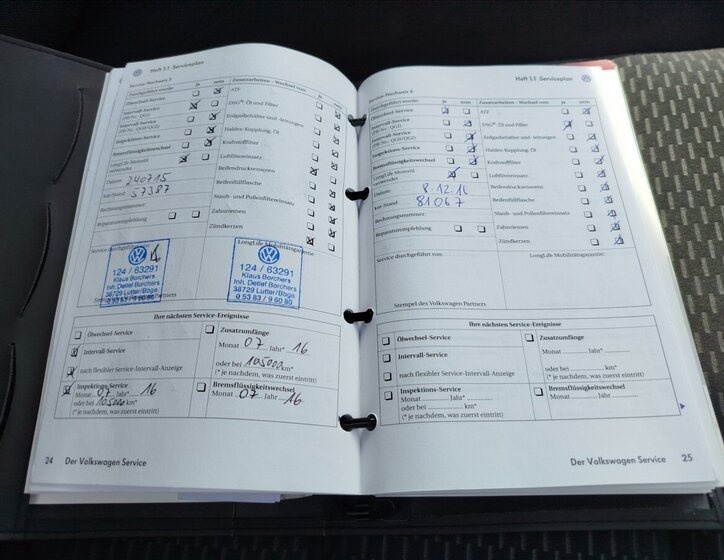 Heft 1.1 Serviceplan
Service-Nachweis 5
Durchgeführt wurde: ja nein
Ölwechsel-Service
Intervall-Service
(PR-Nr.: QG1)
Intervall-Service
(PR-Nr.: QG0/QG2)
Inspektions-Service
Bremsflüssigkeitswechsel
LongLife Motoröl
verwendet
Datum: 240715
km-Stand: 57387
Rechnungsnummer:
Reparaturempfehlung
Zusatzarbeiten – Wechsel von: ja nein
ATF
DSG®: Öl und Filter
Erdgasbehälter und -leitungen
Haldex-Kupplung: Öl
Kraftstofffilter
Luftfiltereinsatz
Reifendrucksensoren
Reifenfüllflasche
Staub- und Pollenfiltereinsatz
Zahnriemen
Zündkerzen
Service durchgeführt von:
124 / 63291
Klaus Borchers
Inh. Detlef Borchers
38729 Lutter/Bbge.
0 53 83 / 9 60 80
LongLife Mobilitätsgarantie:
124 / 63291
Klaus Borchers
Inh. Detlef Borchers
38729 Lutter/Bbge.
0 53 83 / 9 60 80
Ihre nächsten Service-Ereignisse
Ölwechsel-Service
Intervall-Service
nach flexibler Service-Intervall-Anzeige
Zusatzumfänge
Monat 07 Jahr* 16
oder bei 105000 km*
(* je nachdem, was zuerst eintritt)
Inspektions-Service
Monat 07 Jahr* 16
oder bei 105000 km*
(* je nachdem, was zuerst eintritt)
Bremsflüssigkeitswechsel
Monat 07 Jahr 16
24 Der Volkswagen Service
Heft 1.1 Serviceplan
Service-Nachweis 6
Durchgeführt wurde: ja nein
Ölwechsel-Service
Intervall-Service
(PR-Nr.: QG1)
Intervall-Service
(PR-Nr.: QG0/QG2)
Inspektions-Service
Bremsflüssigkeitswechsel
LongLife Motoröl
verwendet
Datum: 8.12.16
km-Stand: 81067
Rechnungsnummer:
Reparaturempfehlung
Zusatzarbeiten – Wechsel von: ja nein
ATF
DSG®: Öl und Filter
Erdgasbehälter und -leitungen
Haldex-Kupplung: Öl
Kraftstofffilter
Luftfiltereinsatz
Reifendrucksensoren
Reifenfüllflasche
Staub- und Pollenfiltereinsatz
Zahnriemen
Zündkerzen
Service durchgeführt von:
LongLife Mobilitätsgarantie:
Stempel des Volkswagen Partners
Ihre nächsten Service-Ereignisse
Ölwechsel-Service
Intervall-Service
nach flexibler Service-Intervall-Anzeige
Zusatzumfänge
Monat ........... Jahr* ...........
oder bei ........... km*
(* je nachdem, was zuerst eintritt)
Inspektions-Service
Monat ........... Jahr* ...........
oder bei ........... km*
(* je nachdem, was zuerst eintritt)
Bremsflüssigkeitswechsel
Monat ........... Jahr ...........
Der Volkswagen Service 25